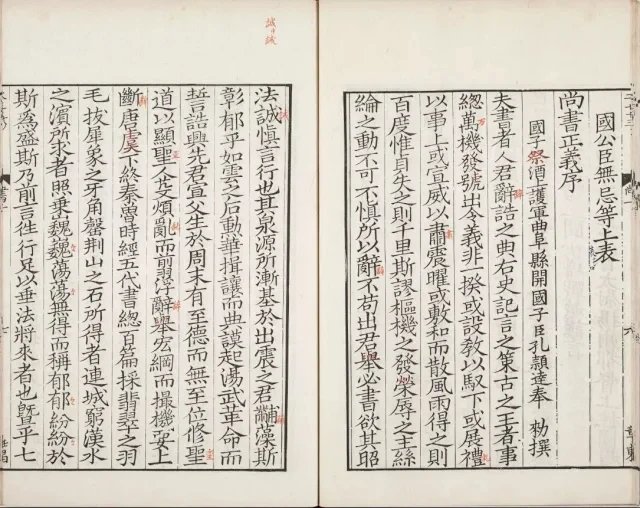 國公臣無忌等上表
尚書正義序
國子祭酒上護軍曲阜縣開國子臣孔穎達奉 勅撰
夫書者人君辭誥之典右史記言之策古之王者事
緫萬機發號出令義非一揆或設教以馭下或展禮
以事上或宣威以肅震曜或敷和而散風雨得之則
百度惟貞失之則千里斯謬樞機之發榮辱之主絲
綸之動不可不慎所以辭不苟出君舉必書欲其昭
法誡慎言行也其泉源所漸基於出震之君黼藻斯
彰郁乎如雲之后勳華揖讓而典謨起湯武革命而
誓誥興先君宣父生於周末有至德而無至位修聖
道以顯聖人芟煩亂而翦浮辭舉宏綱而撮機要上
斷唐虞下終秦魯時經五代書緫百篇採翡翠之羽
毛拔犀象之牙角罄荊山之石所得者連城窮漢水
之濱所求者照乗巍巍蕩蕩無得而稱郁郁紛紛於
斯爲盛斯乃前言徃行足以垂法將來者也曁乎七